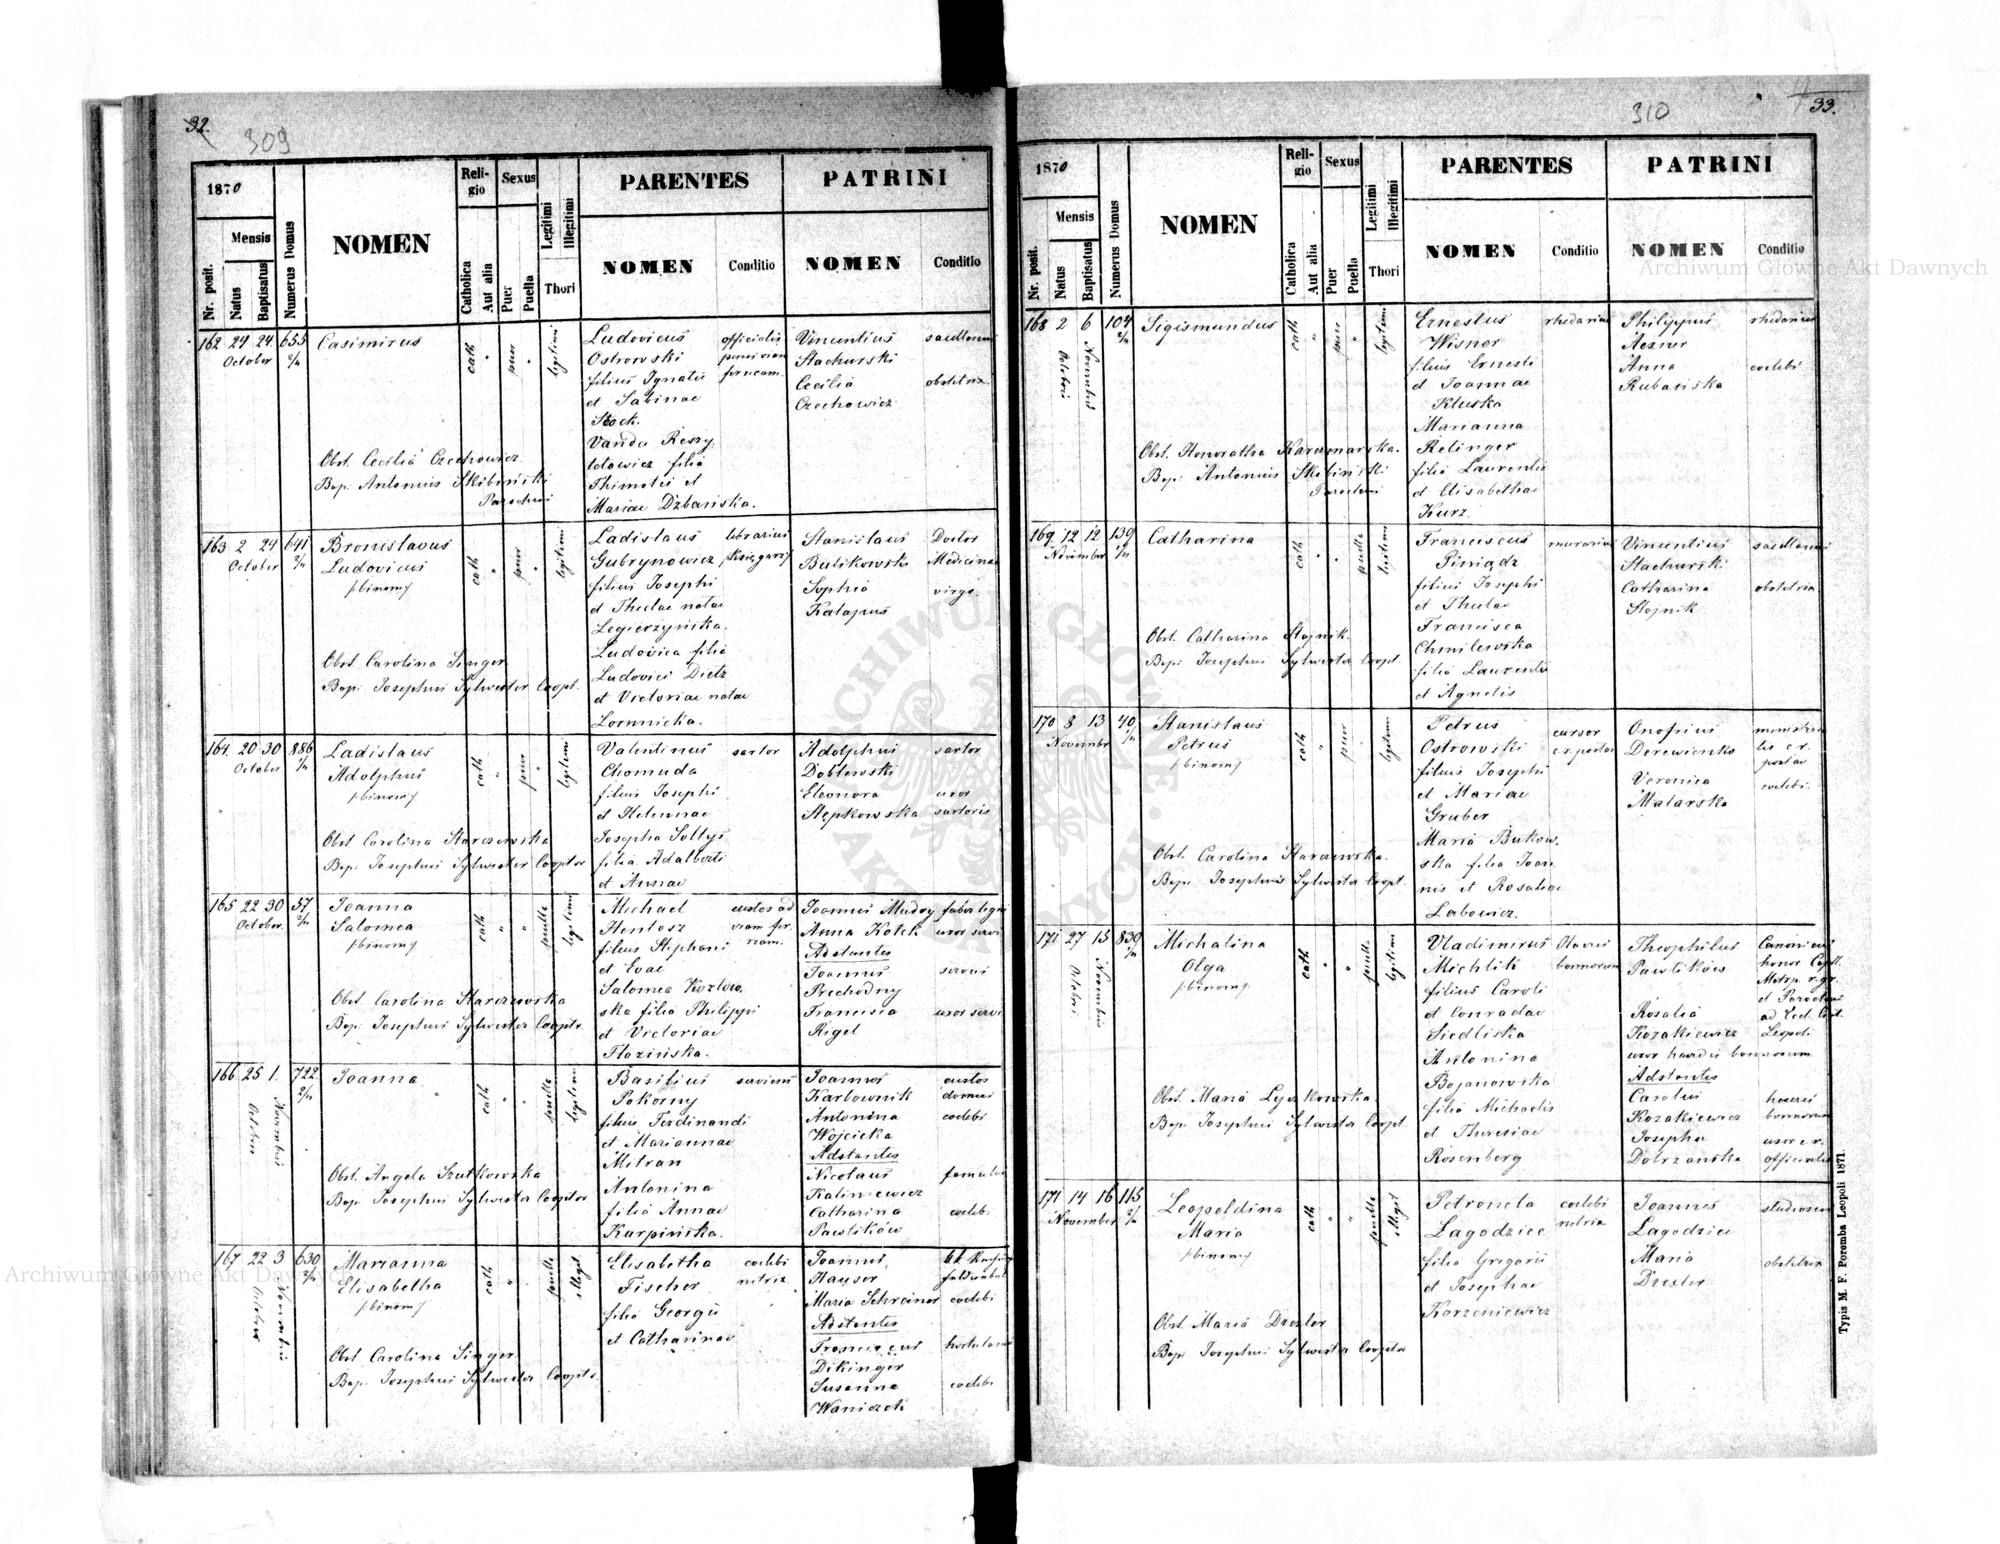 32.
309
1870
Mensis
Nr. posit.
Natus
Baptisatus
Numerus Domus
NOMEN
Religio
Catholica
Aut alia
Sexus
Puer
Puella
Legitimi
Illegitimi
Thori
PARENTES
NOMEN
Conditio
PATRINI
NOMEN
Conditio
162 24 24 655
October
Casimirus
cath
puer
legitimi
Ludovicus
Ostrowski
filius Ignatii
et Sabinae
Stock.
Vanda Reszy
tetowicz filia
Thimotei et
Mariae Dzbańska.
officialis
Vincentius
Stachurski
Cecilia
Czechowicz
obstetrix
Obst. Cecilia Czechowicz
Bap. Antonius Skibiński
Parochus
163 2 24 641
October
Bronislavus
Ludovicus
/:binom:/
cath
puer
legitimi
Ladislaus
Gubrynowicz
filius Josephi
et Theclae natae
Legierzyńska.
Ludovica filia
Ludovici Dietz
et Victoriae natae
Lomnicka.
librarius
/księgarz/
Stanislaus
Bulikowski
Sophia
Kalapus
Doctor
Medicinae
virgo
Obst. Carolina Singer
Bap. Josephus Sylwester Coopt.
164. 20 30 886
October
Ladislaus
Adolphus
/:binom:/
cath
puer
legitimi
Valentinus
Chomuda
filius Josephi
et Helennae
Josepha Soltys
filia Adalberti
et Annae
sartor
Adolphus
Doblewski
Eleonora
Stepkowska
sartor
uxor
sartoris
Obst. Carolina Starczewska
Bap. Josephus Sylwester Cooptor
165 22 30 57
October.
Joanna
Salomea
/:binom:/
cath
puella
legitimi
Michael
Hentosz
filius Stephani
et Evae
Salomea Kozlow
ska filia Philippi
et Victoriae
Flozińska.
custos ad
viam fer
riam.
Joannes Mudry faber lign
Anna Kotek uxor servi
Adstantes
Joannes servus
Prechodny
Francisca uxor servi
Rigel
Obst. Carolina Starczewska
Bap. Josephus Sylwester Cooptr.
166 25 1. 722
Octobris
Novembris
Joanna
cath
puella
legitimi
Basilius
Pokorny
filius Ferdinandi
et Mariannae
Mitran
Antonina
filia Annae
Karpińska.
serviens
Joannes
Karlownik
Antonina
Wojcicka
Adstantes
Nicolaus
Kaliniewicz
Catharina
Pawlików
custos
domus
coelebs
famulus
coelebs
Obst. Angela Szutkowska
Bap. Josephus Sylwester Cooptor
167 22 3 630
Octobris
Novembris
Marianna
Elisabetha
/:binom:/
cath
puella
illegit
Elisabetha
Fischer
filia Georgii
et Catharinae
coelebs
netrix.
Joannes
Hauser
Maria Schreiner coelebs
Adstantes
Franciscus
Dikinger
Susanna coelebs
Waniczek
Obst. Carolina Singer
Bap. Josephus Sylwester Coopt.
310
33.
1870
Mensis
Nr. posit.
Natus
Baptisatus
Numerus Domus
NOMEN
Religio
Catholica
Aut alia
Sexus
Puer
Puella
Legitimi
Illegitimi
Thori
PARENTES
NOMEN
Conditio
PATRINI
NOMEN
Conditio
168 2 6 104
Octobris
Novembris
Sigismundus
cath
puer
legitimi
Ernestus
Wisner
filius Ernesti
et Joannae
Kluska
Marianna
Relinger
filia Laurentii
et Elisabethae
Kurz.
rhedarius
Philippus
Aezner
Anna
Rubańska
rhedarius
coelebs
Obst. Honoratha Karczmarska.
Bap. Antonius Skibiński
Parochus
169. 12 12 139
November
Catharina
cath
puella
legitimi
Franciscus
Piniądz
filius Josephi
et Theclae
Francisca
Chmilewska
filia Laurentii
et Agnetis
murarius
Vincentius
Stachurski
Catharina
Stojnik
obstetrix
Obst. Catharina Stojnik.
Bap. Josephus Sylwester Coopt.
170 8 13 40
November
Stanislaus
Petrus
/:binom:/
cath
puer
legitimi
Petrus
Ostrowski
filius Josephi
et Mariae
Gruber
Maria Bukow
ska filia Joan
nis et Rosaliae
Labowicz.
cursor
c.r. postae
Onofrius
Derewienko
Veronica
Malarska
ministria
lis c.r.
postae
coelebs.
Obst. Carolina Starczewska.
Bap. Josephus Sylwester Coopt.
171 27 15 839
Octobris
Novembris
Michalina
Olga
/:binom:/
cath
puella
legitimi
Vladimirus
Michlik
filius Caroli
et Conradae
Siedliska
Antonina
Bojanowska
filia Michaelis
et Theresiae
Rosenberg
bonnorum
Theophilus
Pawlików
Rosalia
Kozakiewicz
uxor haeredis bonnorum
Adstantes
Carolus
Kozakiewicz
Josepha
Dobrzańska
Canonicus
honor. Capit.
Metrop. r. gr.
et Parochus
Leopoli
haeres
bonnorum
uxor c.r.
officialis
Obst. Maria Lyszkowska.
Bap. Josephus Sylwester Coopt.
171 14 16 165
November
Leopoldina
Maria
/:binom:/
cath
puella
illegit
Petronela
Lagodziec
filia Gregorii
et Josephae
Korzeniewicz
coelebs
netrix
Joannes
Lagodziec
Maria
Drexler
studiosus
obstetrix
Obst. Maria Drexler
Bap. Josephus Sylwester Cooptor
Typis M. F. Poremba Leopoli 1871.
Archiwum Główne Akt Dawnych
Archiwum Główne Akt Dawnych
ARCHIWUM GŁÓWNE AKT DAWNYCH